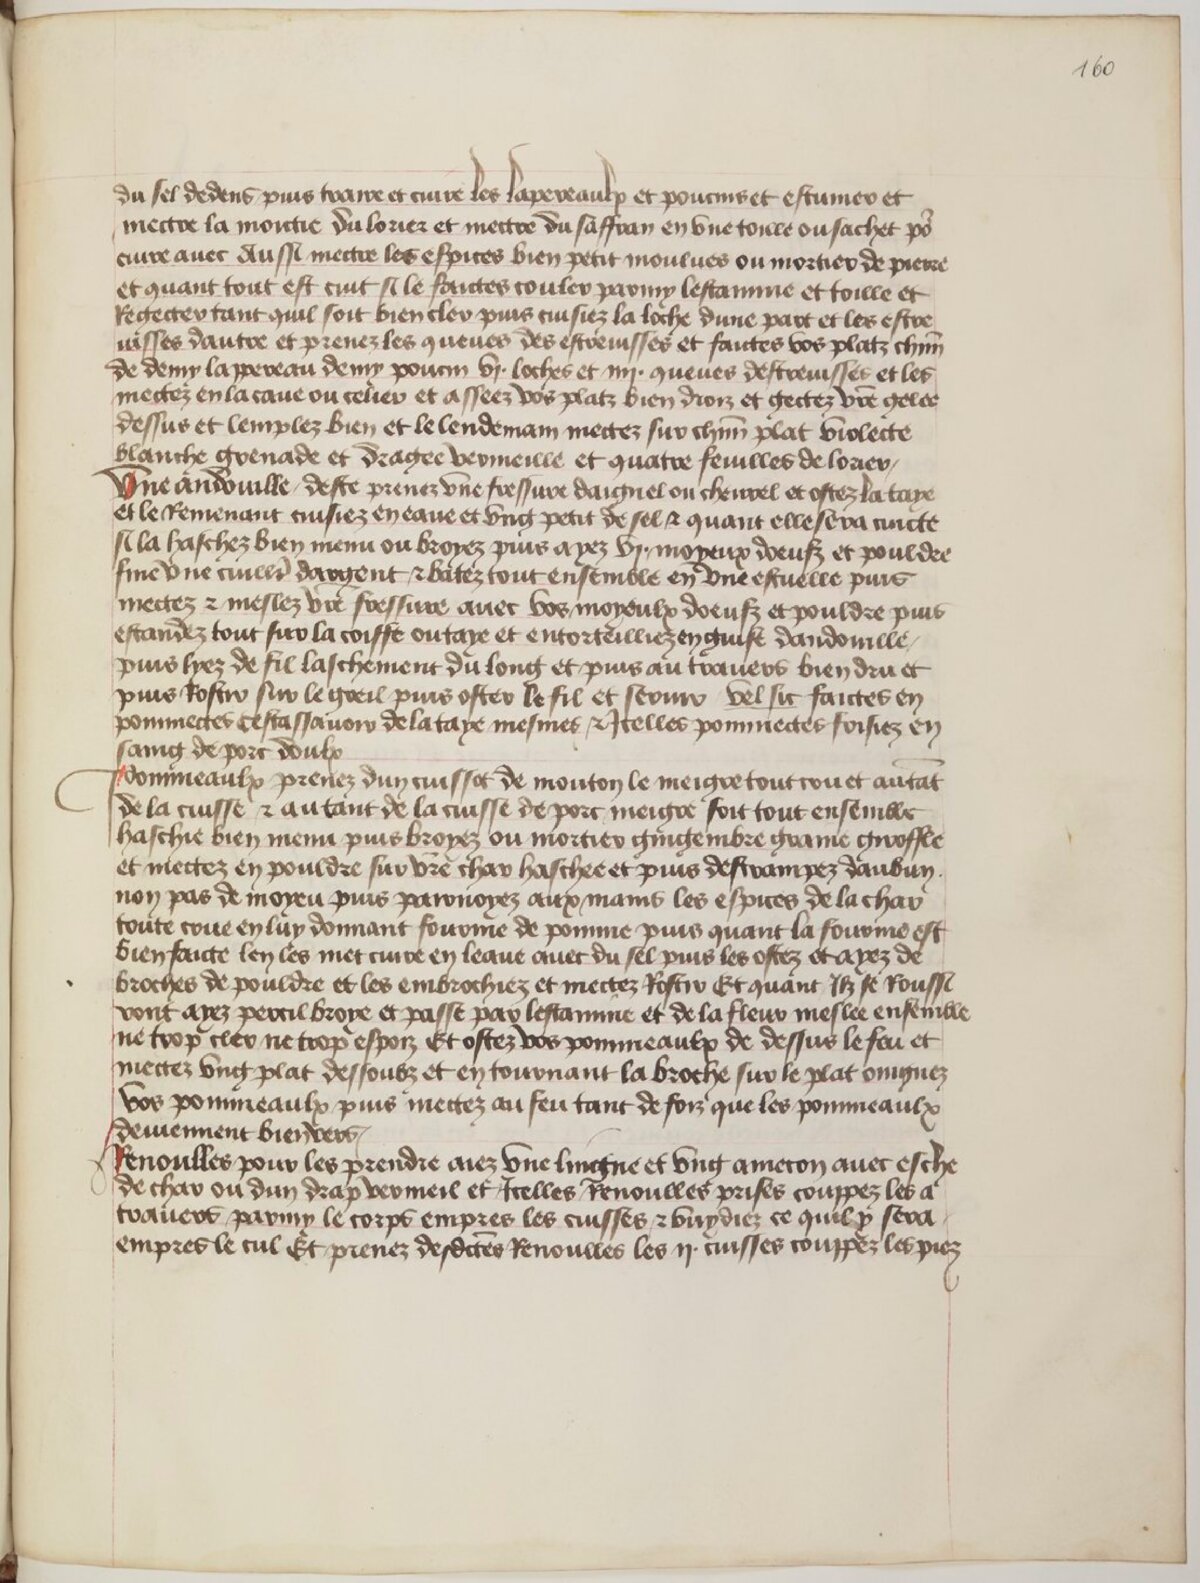 160
du sel dedens puis traire et cuire les lapereaulx et poucins et escumer et
mectre la moictie du lorier et mectre du saffran en une toille ou sachet po^r
cuire avec Aussi mectre les espices bien petit moulues ou mortier de pierre
et quant tout est cuit si le faictes couler parmy lestamine et toille et
Regecter tant quil soit bien cler puis cuisiez la loche dune part et les escre
visses dautre et prenez les queues des escrevisses et faictes vos platz chun
de demy lapereau demy poucin vj. loches et iiij. queues descrevisses et les
mectez en la cave ou celier et asseez vos platz bien droiz et gectez vre gelee
dessus et lemplez bien et le lendemain mectez sur chun plat violecte
blanche grenade et dragee vermeille et quatre feuilles de lorier /
Une andouille / deste prenez une fressure daignel ou chevrel et ostez la taye
et le Remenant cuisiez en eaue et ung petit de sel & quant elle sera cuicte
si la haschez bien menu ou broyez puis ayez vj. moyeux doeufz et pouldre
fine une cuillr dargent & batez tout ensemble en une escuelle puis
mectez & meslez vre fressure avec vos moyeulx doeufz et pouldre puis
estandez tout sur la coiffe ou taye et entorteilliez en guise dandouille /
puis lyez de fil laschement du long et puis au travers bien dru et
puis Rostir sur le greil puis oster le fil et servir vel sic faictes en
pommectes cestassavoir de la taye mesmes & Icelles pommectes frisiez en
saing de porc doulx
Pommeaulx prenez dun cuissot de mouton le meigre tout cru et autat
de la cuisse & autant de la cuisse de porc meigre soit tout ensemble
haschie bien menu puis broyez ou mortier gingembre graine giroffle
et mectez en pouldre sur vre char haschee et puis destrampez daubun .
non pas de moyeu puis paronoyez aux mains les espices de la char
toute crue en luy donnant fourme de pomme puis quant la fourme est
bien faicte len les met cuire en leaue avec du sel puis les ostez et ayez de
broches de couldre et les embrochiez et mectez Rostir Et quant Ilz se Roussi
ront ayez percil broye et passe par lestamine et de la fleur meslee ensemble
ne trop cler ne trop espoiz Et ostez vos pommeaulx de dessus le feu et
mectez ung plat dessoubz et en tournant la broche sur le plat oingnez
vos pommeaulx puis mectez au feu tant de foiz que les pommeaulx
deviennent bien vers /
Renoulles pour les prendre aiez une lingne et ung ameçon avec esche
de char ou dun drap vermeil et Icelles Renoulles prises couppez les a
travers parmy le corps empres les cuisses & vuydiez ce quil y sera
empres le cul Et prenez desdictes Renoulles les ij. cuisses couppez les piez